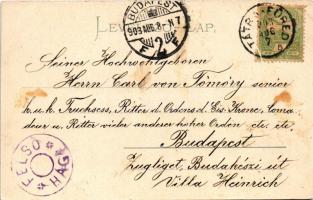 LEV LAP.
BUDAPEST
903 AUG. 8
TÁTRAFÜRED
Seiner Hochwohlgeboren
Herrn Carl von Tömöry senior
k. u. k. Truchsess, Ritter d. Ordens d. Eis. Krone, Coma-
deur u. Ritter vieler anderer hoher Orden etc. etc.
Budapest
Zugliget, Budakészi út
Villa Heinrich
FELSŐ HÁGI